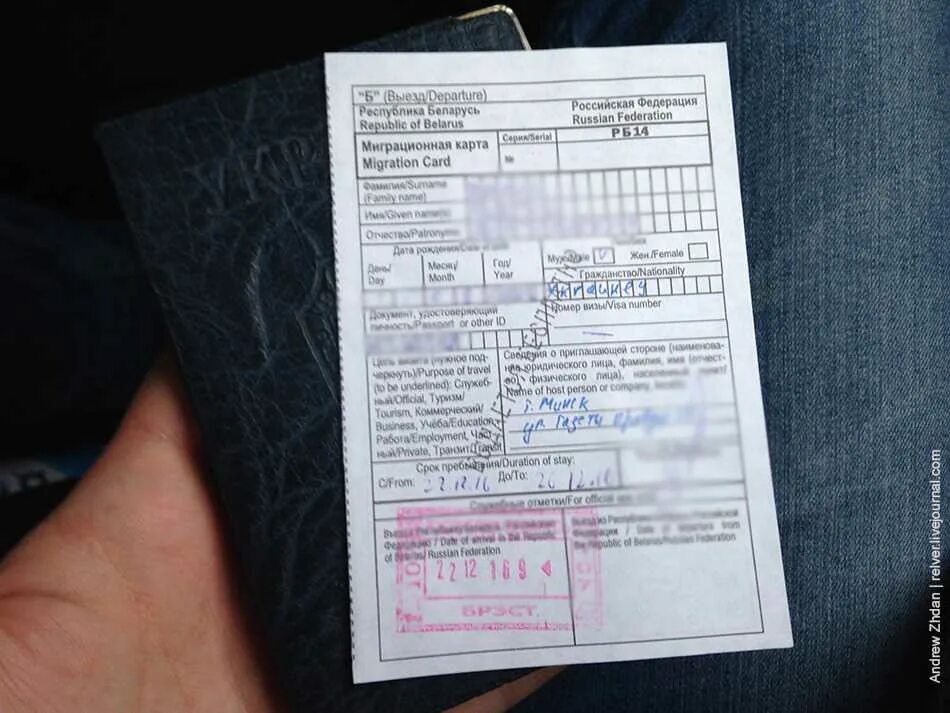 "Б" (Выезд/Departure)
Республика Беларусь
Republic of Belarus
Российская Федерация
Russian Federation
Миграционная карта
Migration Card
Серия/Serial
РБ14
№
Фамилия/Surname
(Family name)
Имя/Given name(s)
Отчество/Patronymic
Дата рождения/Date
День/
Day
Месяц/
Month
Год/
Year
Муж./Male V Жен./Female
Гражданство/Nationality
Документ, удостоверяющий
личность/Passport or other ID
Номер визы/Visa number
Цель визита (нужное под-
черкнуть)/Purpose of travel
(to be underlined): Служеб-
ный/Official, Туризм/
Tourism, Коммерческий/
Business, Учёба/Education,
Работа/Employment, Част-
ный/Private, Транзит/Transit
Сведения о приглашающей стороне (наименова-
ние юридического лица, фамилия, имя (отчест-
во) физического лица), населенный пункт/
Name of host person or company,
г. Минск
ул. Газеты
Срок пребывания/Duration of stay:
С/From: 22.12.16 До/To: 26.12.16
Служебные отметки/For official
Въезд в Республику Беларусь/Российскую
Федерацию / Date of arrival in the Republic
of Belarus/ Russian Federation
22 12 16 9
БРЭСТ
Выезд из Республики
Федерации / Date of departure from
the Republic of Belarus/Russian Federation
Andrew Zhdan | relver.livejournal.com